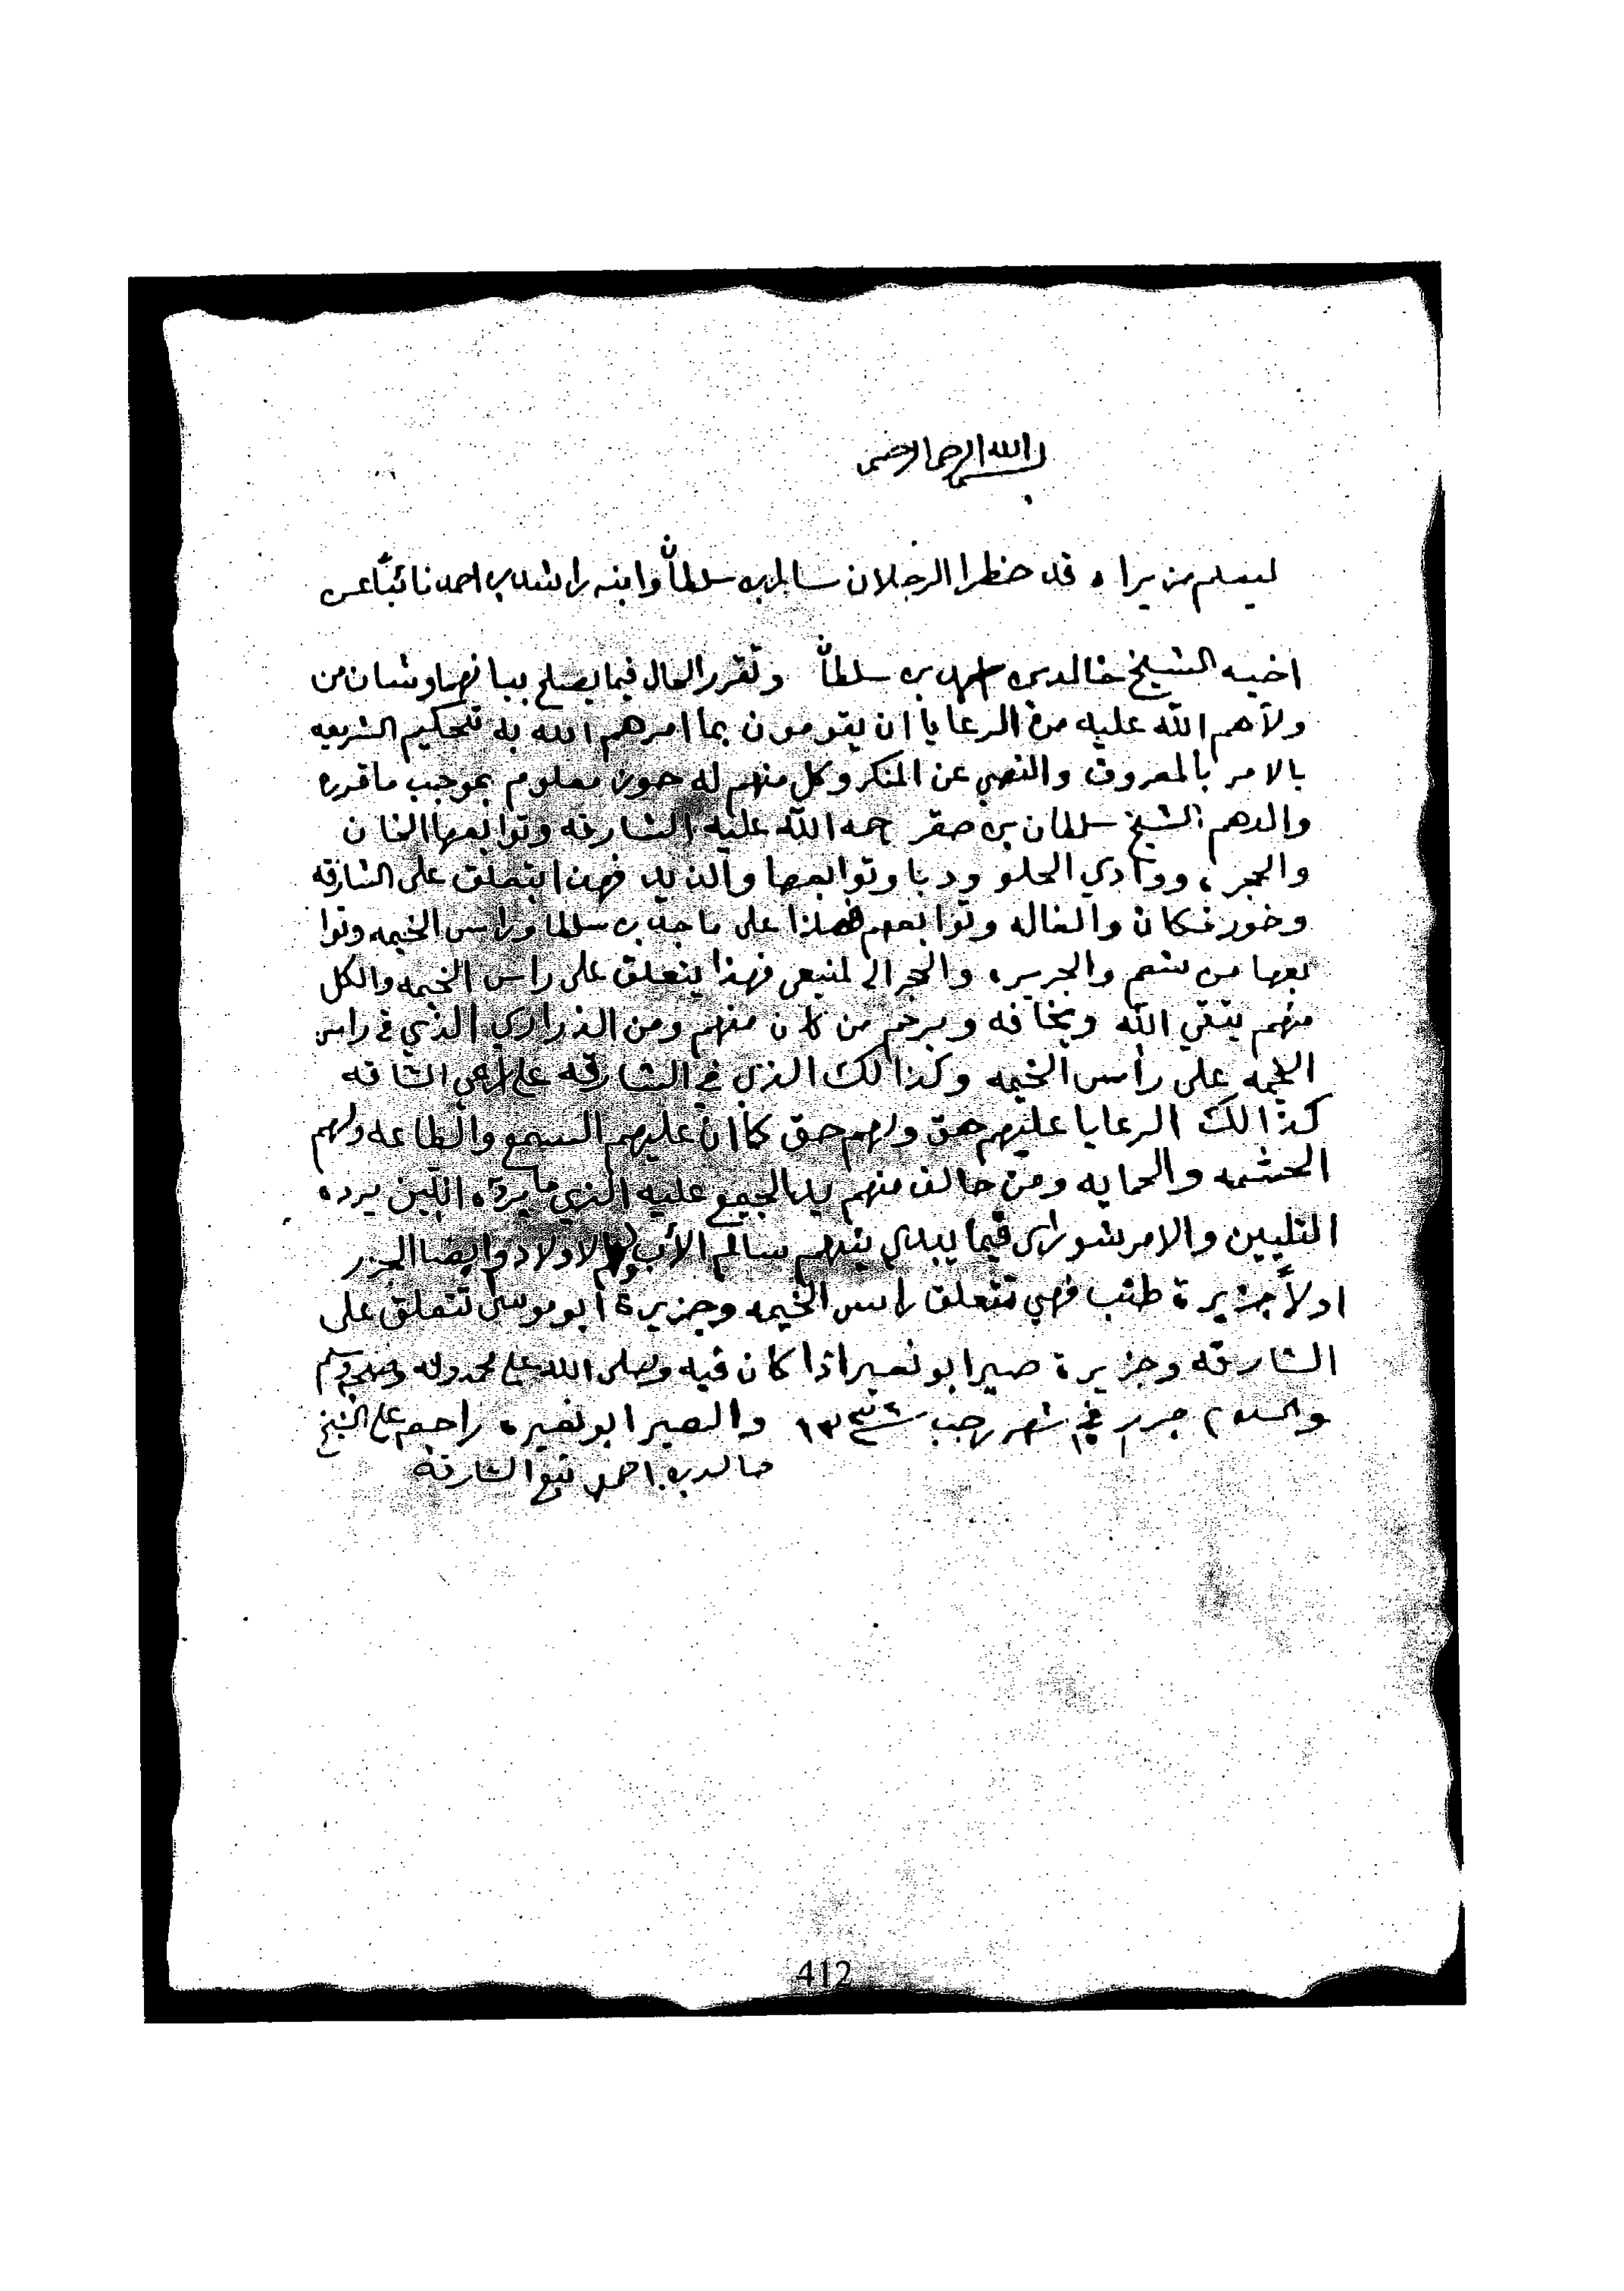 بسم الله الرحمن الرحيم
ليعلم من يراه قد حظرا الرجلان سالم بن سلطان وابنه راشد بن احمد نائباً عن
اخيه الشيخ خالد بن احمد بن سلطان وتقرر الحال فيما يصلح بينهما وشان من
ولاهم الله عليه من الرعايا ان يقومون بما امرهم الله به تحكيم الشريعه
بالامر بالمعروف والنهي عن المنكر وكل منهم له حوز معلوم بموجب ما قرره
والدهم الشيخ سلطان بن صقر رحمه الله عليه الشارقه وتوابعها الخان
والحمريه ووادي الحلو ودبا وتوابعها والذيد فهذا يتعلق على الشارقه
وخورفكان والغاله وتوابعهم فهذا على ماجد بن سلطان وراس الخيمه وتوا
بعها من شعم والجزيره والحجر الى لمنيعي فهذا يتعلق على راس الخيمه والكل
منهم يتقي الله ويخافه ويرحم من كان منهم ومن الذراري الذي في راس
الخيمه على راس الخيمه وكذالك الذي في الشارقه على راعي الشاقه
كذالك الرعايا عليهم حق ولهم حق كما ان عليهم السمع والطاعه ولهم
الحشمه والحمايه ومن خالف منهم يد الجميع عليه الذي ما يرده اللين يرده
التليين والامر شورى فيما يبدي بينهم سالم الأب وهم الاولاد وايضا الجزر
اولاً جزيرة طنب فهي تتعلق راس الخيمه وجزيرة ابو موسى تتعلق على
الشارقه وجزيرة صير ابو نعير اذا كان فيه وصلى الله على محمد واله وصحبه وسلم
والسلام حرر في شهر رجب والصير ابو نعيره راجع على الشيخ
خالد بن احمد تبع الشارقة
412